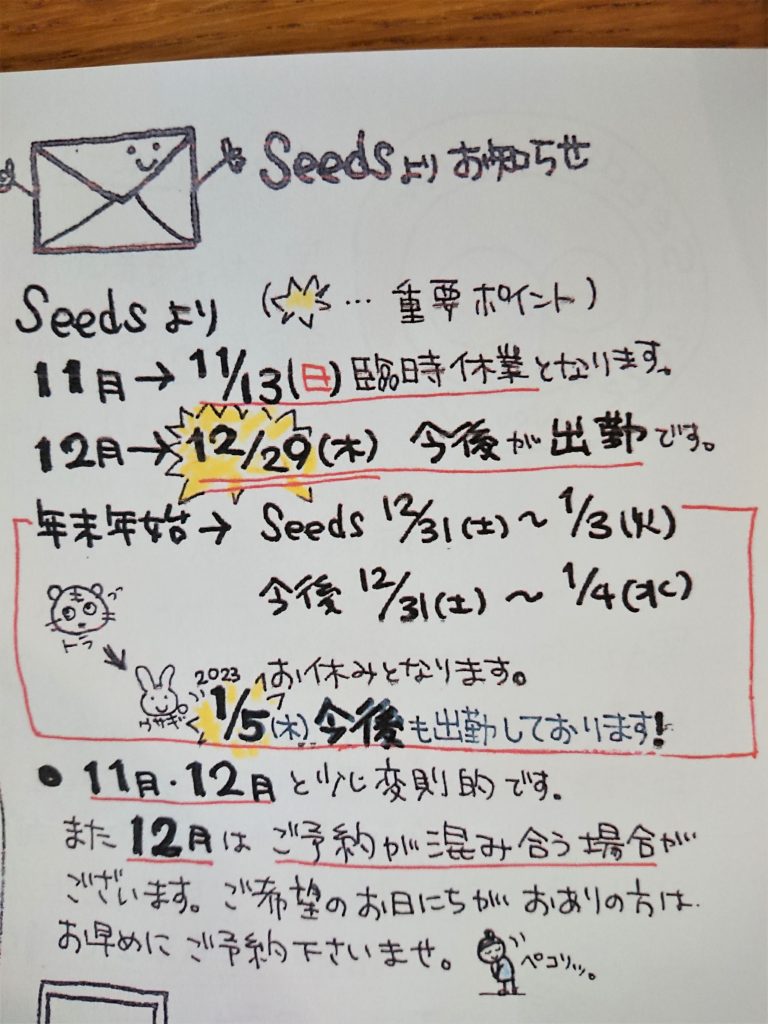 Seedsよりお知らせ
Seedsより (… 重要ポイント)
11月→11/13(日)臨時休業となります。
12月→12/29(木) 今後が出勤です。
年末年始→ Seeds 12/31(土)～1/3(火)
今後 12/31(土)～1/4(水)
トラ
お休みとなります。
ウサギ
2023 1/5(木)今後も出勤しております!
●11月・12月と少し変則的です。
また12月はご予約が混み合う場合が
ございます。ご希望のお日にちがおありの方は
お早めにご予約下さいませ。
ペコリッ。